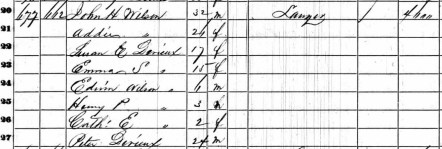 20 677 662 John H Wilson 32 m Lawyer 1 4000
21 Addie " 26 f
22 Susan E Devieux 17 f
23 Emma S " 15 f
24 Edwin Wilson 6 m
25 Henry P " 3 m
26 Cath: E " 2 f
27 Peter Devieux 24 m